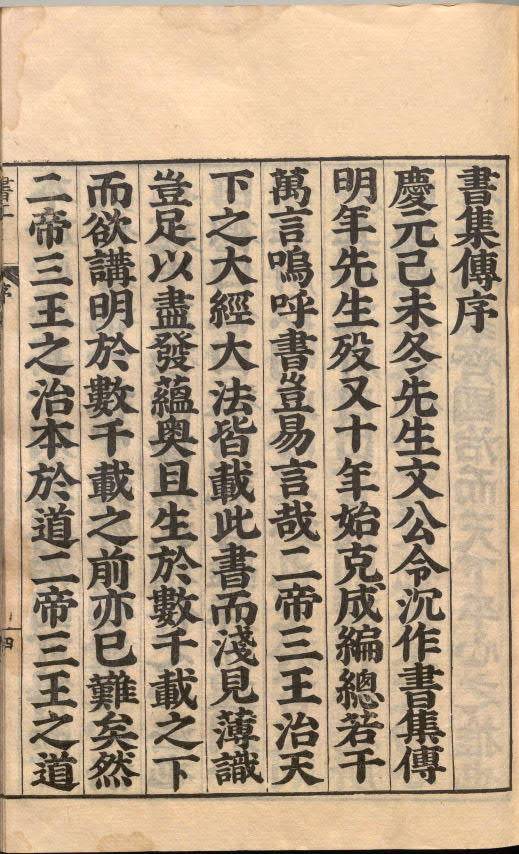 書集傳序
慶元己未冬先生文公令沉作書集傳
明年先生歿又十年始克成編總若干
萬言嗚呼書豈易言哉二帝三王治天
下之大經大法皆載此書而淺見薄識
豈足以盡發蘊奧且生於數千載之下
而欲講明於數千載之前亦已難矣然
二帝三王之治本於道二帝三王之道